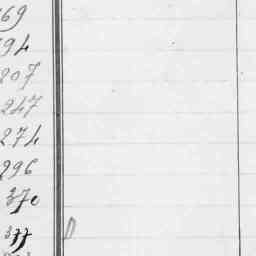 69
94
207
247
274
296
370
377